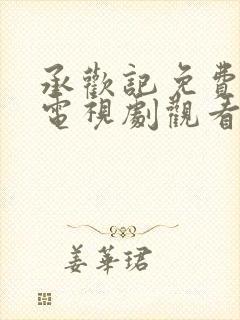 承歡記免費
電視劇觀看
姜華珺